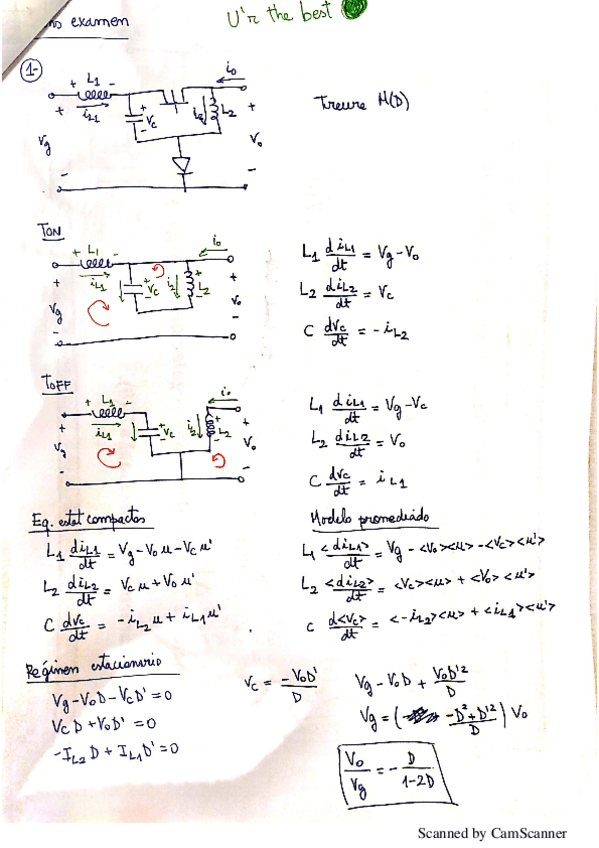 examen
U'r the best
1-
+ L1 -
iL1
+ Vc -
io
iL2
L2
+ Vg -
+ Vo -
Treure M(D)
TON
+ L1 -
iL1
+ Vc -
io
i2
L2
+ Vg -
+ Vo -
L1 diL1/dt = Vg - Vo
L2 diL2/dt = Vc
C dvc/dt = - iL2
TOFF
+ L1 -
iL1
+ Vc -
io
i2
L2
+ Vg -
+ Vo -
L1 diL1/dt = Vg - Vc
L2 diL2/dt = Vo
C dvc/dt = iL1
Eq. estat compactas
L1 diL1/dt = Vg - Vo u - Vc u'
L2 diL2/dt = Vc u + Vo u'
C dvc/dt = - iL2 u + iL1 u'
Modelo promediado
L1 <diL1>/dt = Vg - <Vo><u> - <Vc><u'>
L2 <diL2>/dt = <Vc><u> + <Vo><u'>
C d<vc>/dt = <-iL2><u> + <iL1><u'>
Régimen estacionario
Vg - VoD - VcD' = 0
VcD + VoD' = 0
-IL2 D + IL1 D' = 0
Vc = -VoD'/D
Vg - VoD + VoD'²/D
Vg = ( -D² + D'²/D ) Vo
Vo/Vg = - D/1-2D
Scanned by CamScanner